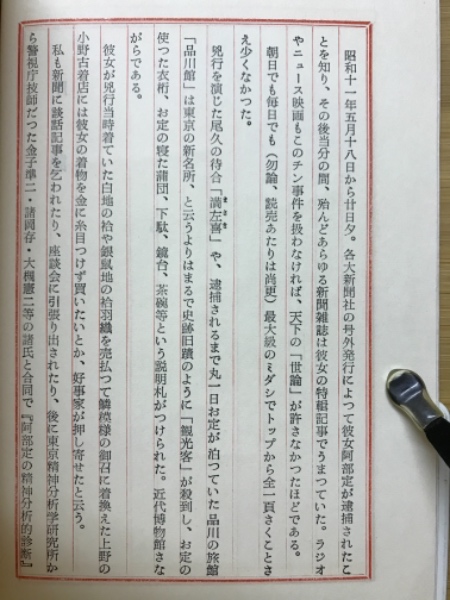 昭和十一年五月十八日から廿日夕。各大新聞社の号外発行によつて彼女阿部定が逮捕されたこ
とを知り、その後当分の間、殆んどあらゆる新聞雑誌は彼女の特輯記事でうまつていた。ラジオ
やニュース映画もこのチン事件を扱わなければ、天下の「世論」が許さなかつたほどである。
朝日でも毎日でも（勿論、読売あたりは尚更）最大級のミダシでトップから全一頁さくことさ
え少くなかつた。
兇行を演じた尾久の待合「満左喜」や、逮捕されるまで丸一日お定が泊つていた品川の旅館
「品川館」は東京の新名所、と云うよりはまるで史跡旧蹟のように「観光客」が殺到し、お定の
使つた衣桁、お定の寝た蒲団、下駄、鏡台、茶碗等という説明札がつけられた。近代博物館さな
がらである。
彼女が兇行当時着ていた白地の袷や銀鼠地の袷羽織を売払つて鱗模様の御召に着換えた上野の
小野古着店には彼女の着物を金に糸目つけず買いたいとか、好事家が押し寄せたと云う。
私も新聞に談話記事を乞われたり、座談会に引張り出されたり、後に東京精神分析学研究所か
ら警視庁技師だつた金子準二・諸岡存・大槻憲二等の諸氏と合同で『阿部定の精神分析的診断』